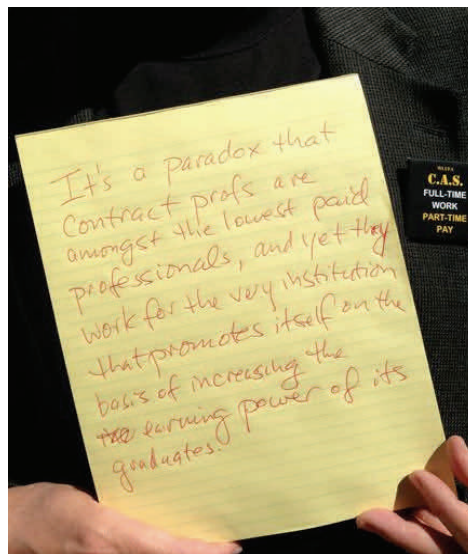 It's a paradox that
Contract profs are
amongst the lowest paid
professionals, and yet they
work for the very institution
that promotes itself on the
basis of increasing the
earning power of its
graduates.
C.A.S.
FULL-TIME
WORK
PART-TIME
PAY